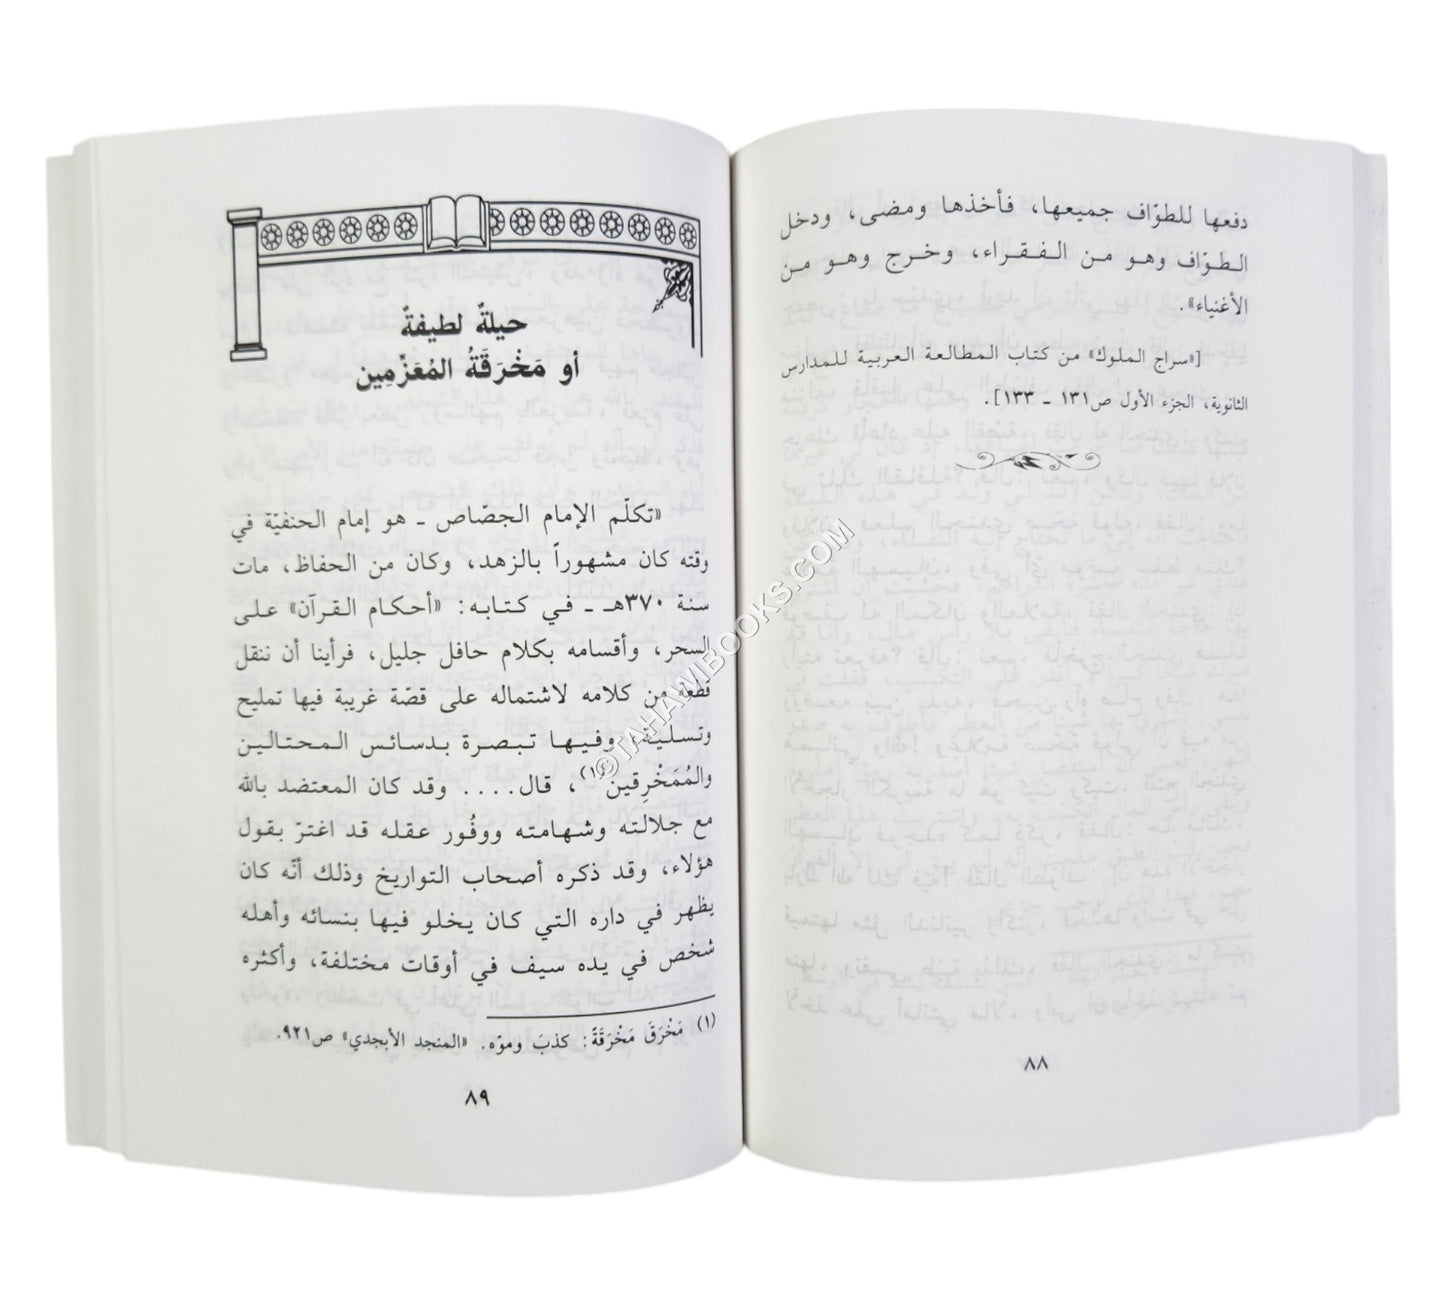 دفعها للطوّاف جميعها، فأخذها ومضى، ودخل
الطوّاف وهو من الفقراء، وخرج وهو من
الأغنياء».
[«سراج الملوك» من كتاب المطالعة العربية للمدارس
الثانوية، الجزء الأول ص١٣١ ـ ١٣٣].
٨٨
حيلةٌ لطيفةٌ
أو مَخْرَقَةُ المُعَزِّمِين
«تكلّم الإمام الجصّاص ـ هو إمام الحنفيّة في
وقته كان مشهوراً بالزهد، وكان من الحفاظ، مات
سنة ٣٧٠هـ ـ في كتابه: «أحكام القرآن» على
السحر، وأقسامه بكلام حافل جليل، فرأينا أن ننقل
قطعة من كلامه لاشتماله على قصّة غريبة فيها تمليح
وتسلية، وفيها تبصرة بدسائس المحتالين
والمُمَخْرِقين(١)، قال.... وقد كان المعتضد بالله
مع جلالته وشهامته ووفُور عقله قد اغترّ بقول
هؤلاء، وقد ذكره أصحاب التواريخ وذلك أنّه كان
يظهر في داره التي كان يخلو فيها بنسائه وأهله
شخص في يده سيف في أوقات مختلفة، وأكثره
(١) مَخْرَقَ مَخْرَقَةً: كذبَ وموّه. «المنجد الأبجدي» ص٩٢١.
٨٩
©TAHAMBOOKS.COM